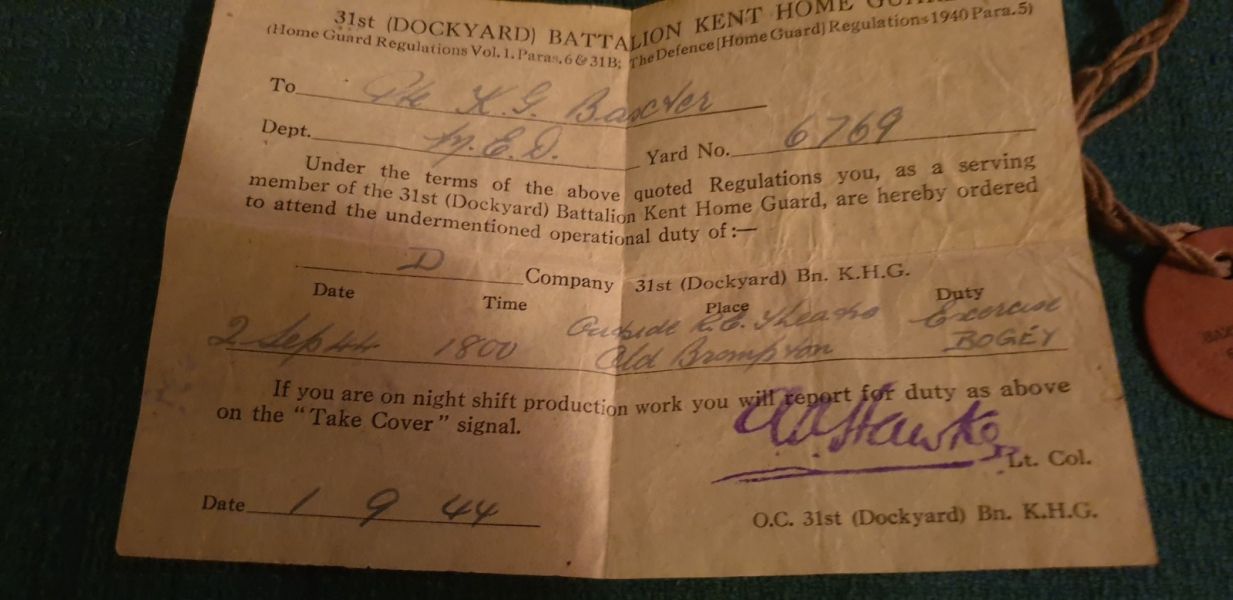 31st (DOCKYARD) BATTALION KENT HOME GUARD
(Home Guard Regulations Vol. 1. Paras. 6 & 31B; The Defence [Home Guard] Regulations 1940 Para. 5)
To Pte K. G. Baxter
Dept. M. E. D. Yard No. 6769
Under the terms of the above quoted Regulations you, as a serving
member of the 31st (Dockyard) Battalion Kent Home Guard, are hereby ordered
to attend the undermentioned operational duty of:—
D Company 31st (Dockyard) Bn. K.H.G.
Date Time Place Duty
Outside R.E. Theatre Exercise
2 Sep 44 1800 Old Brompton BOGEY
If you are on night shift production work you will report for duty as above
on the "Take Cover" signal.
Hawke
Lt. Col.
Date 1 9 44
O.C. 31st (Dockyard) Bn. K.H.G.